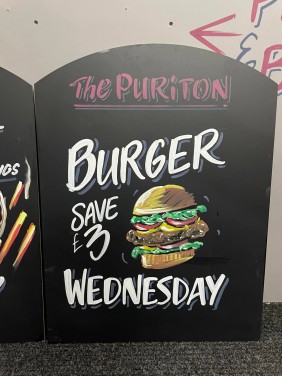 The PURITON
BURGER
SAVE
£3
WEDNESDAY
&